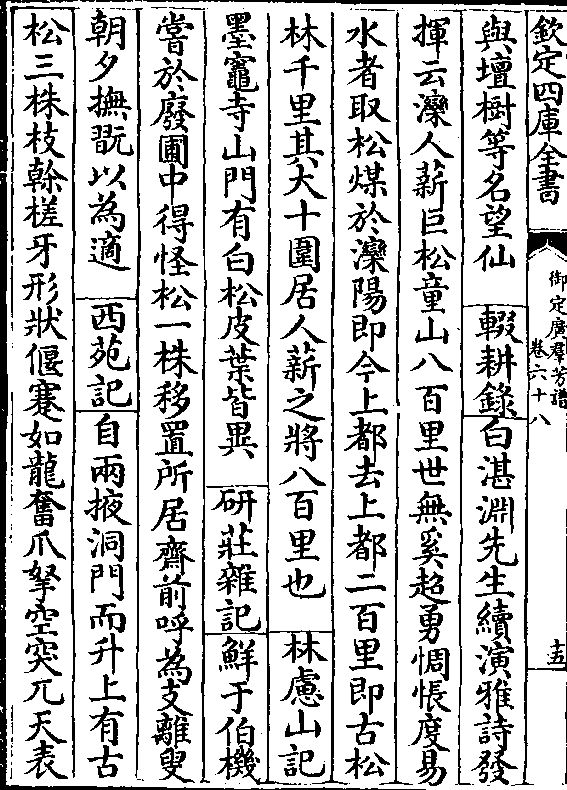 欽定四庫全書
御定廣群芳譜
卷六十八
十五
與壇樹等名望仙 輟耕錄白湛淵先生續演雅詩發
揮云灤人薪巨松童山八百里世無奚超勇惆悵度易
水者取松煤於灤陽即今上都去上都二百里即古松
林千里其大十圍居人薪之將八百里也 林慮山記
墨竈寺山門有白松皮葉皆異 研莊雜記鮮于伯機
嘗於廢圃中得怪松一株移置所居齋前呼為支離叟
朝夕撫翫以為適 西苑記自兩掖洞門而升上有古
松三株枝榦槎牙形狀偃蹇如龍奮爪拏空突兀天表